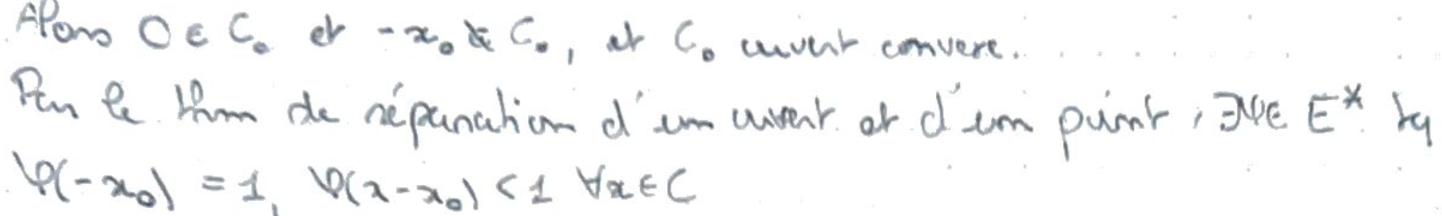 Alors 0 ∈ C₀ et -x₀ ∉ C₀, et C₀ ouvert convexe.
Par le thm de séparation d'un ouvert et d'un point, ∃φ∈ E* tq
φ(-x₀) = 1, φ(x-x₀) < 1 ∀x ∈ C